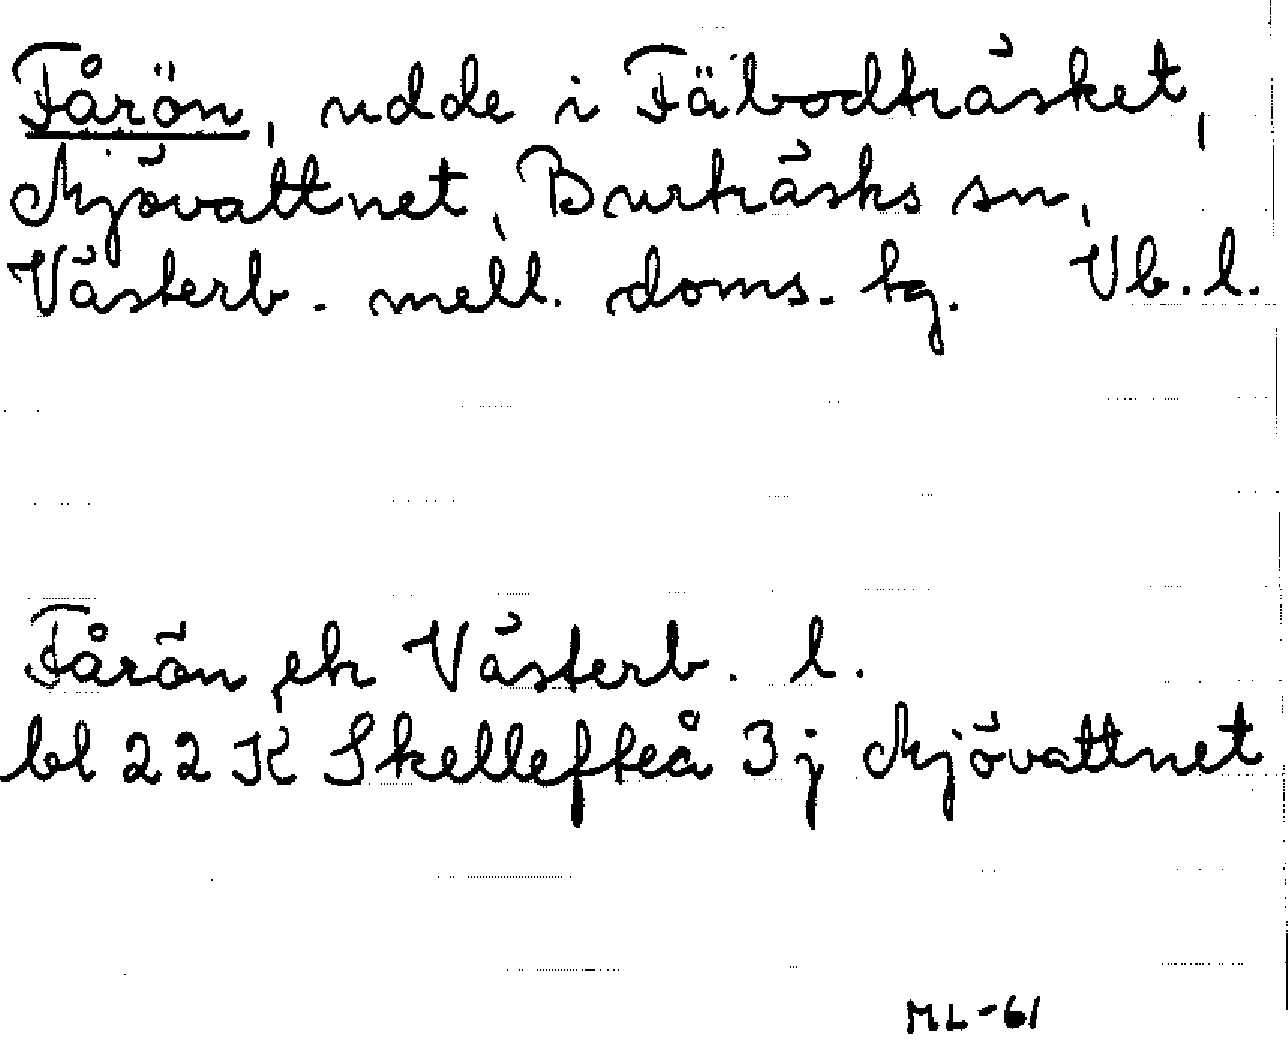 Fårön, udde i Fäbodträsket,
Mjövattnet, Burträsks sn,
Västerb. mell. doms. tg. Vb. l.
Fårön, ek Västerb. l.
bl 22 K Skellefteå 3j Mjövattnet
ML-61